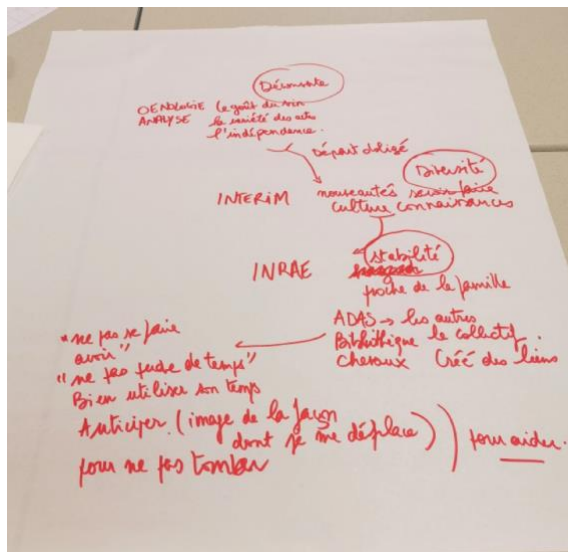 Découverte
OENOLOGIE le goût du vin
ANALYSE la variété des actes
l'indépendance.
Départ obligé
Diversité
INTERIM nouveautés savoir faire
culture connaissances
stabilité
INRAE
proche de la famille
ADAS → les autres
Bibliothèque le collectif
chevaux Créé des liens
"ne pas se faire
avoir"
"ne pas perdre de temps"
Bien utiliser son temps
Anticiper (image de la façon
dont je me déplace)
pour ne pas tomber
pour aider.